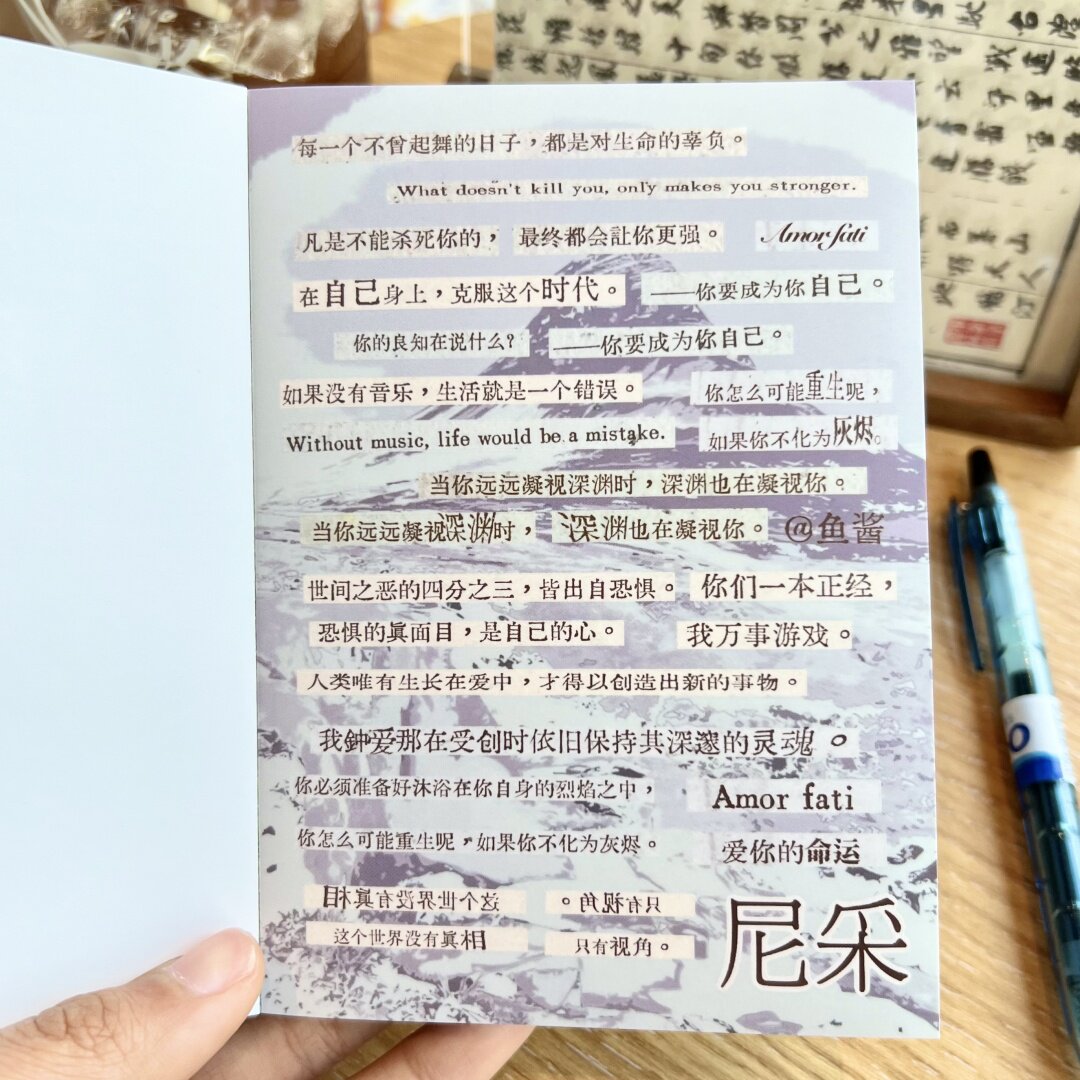 每一个不曾起舞的日子，都是对生命的辜负。
What doesn't kill you, only makes you stronger.
凡是不能杀死你的， 最终都会让你更强。 Amor fati
在自己身上，克服这个时代。 ——你要成为你自己。
你的良知在说什么？ ——你要成为你自己。
如果没有音乐，生活就是一个错误。 你怎么可能重生呢，
Without music, life would be a mistake. 如果你不化为灰烬。
当你远远凝视深渊时，深渊也在凝视你。
当你远远凝视深渊时， 深渊也在凝视你。 @鱼酱
世间之恶的四分之三，皆出自恐惧。 你们一本正经，
恐惧的真面目，是自己的心。 我万事游戏。
人类唯有生长在爱中，才得以创造出新的事物。
我鍾爱那在受创时依旧保持其深邃的灵魂。
你必须准备好沐浴在你自身的烈焰之中， Amor fati
你怎么可能重生呢，如果你不化为灰烬。 爱你的命运
这个世界没有真相 只有视角。
这个世界没有真相 只有视角。
尼采